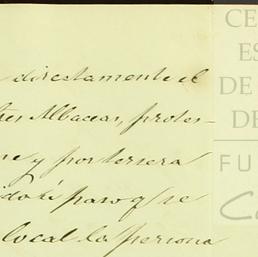 directamente el
tres Albaceas, protes-
y por tersera
paso q/ se
local la persona
CE
ES
DE
DE
FU